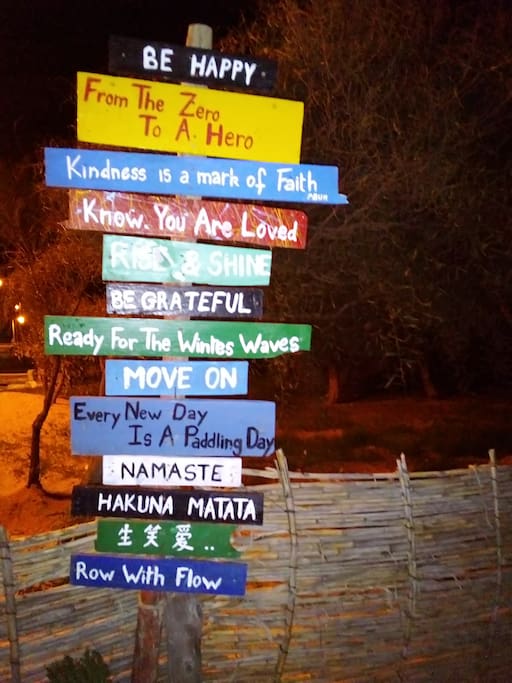 BE HAPPY
From The Zero
To A Hero
Kindness is a mark of Faith
Know. You Are Loved
RISE & SHINE
BE GRATEFUL
Ready For The Wintes Waves
MOVE ON
Every New Day
Is A Paddling Day
NAMASTE
HAKUNA MATATA
生笑爱..
Row With Flow